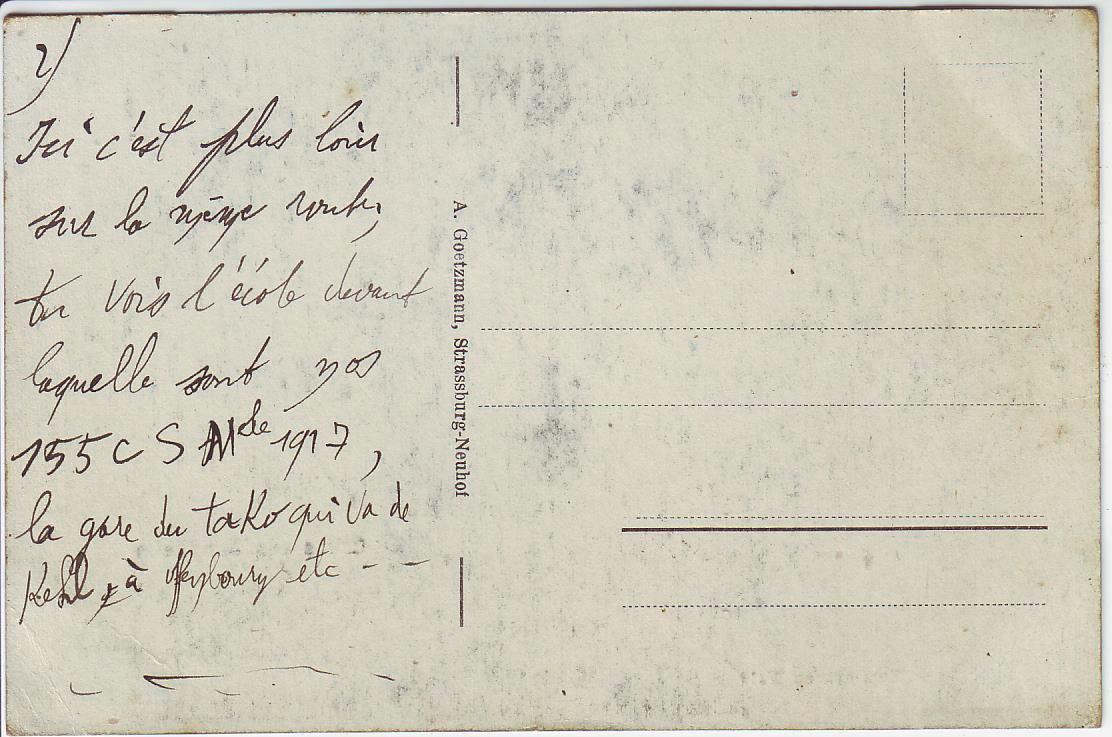 2)
Ici c'est plus loin
sur la même route,
tu vois l'école devant
laquelle sont nos
155 C S Mdle 1917,
la gare du tako qui va de
Kehl à Offenbourg etc - -
A. Goetzmann, Strassburg-Neuhof